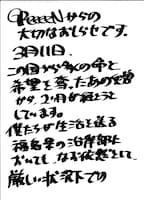 GReeeeNからの
大切なおしらせです。
3月11日.
この国から多くの命と
希望を奪ったあの災害
から、2か月が経とうと
しています。
僕たちが生活を送る
福島県の沿岸部に
おいても、なお依然として
厳しい状況下での